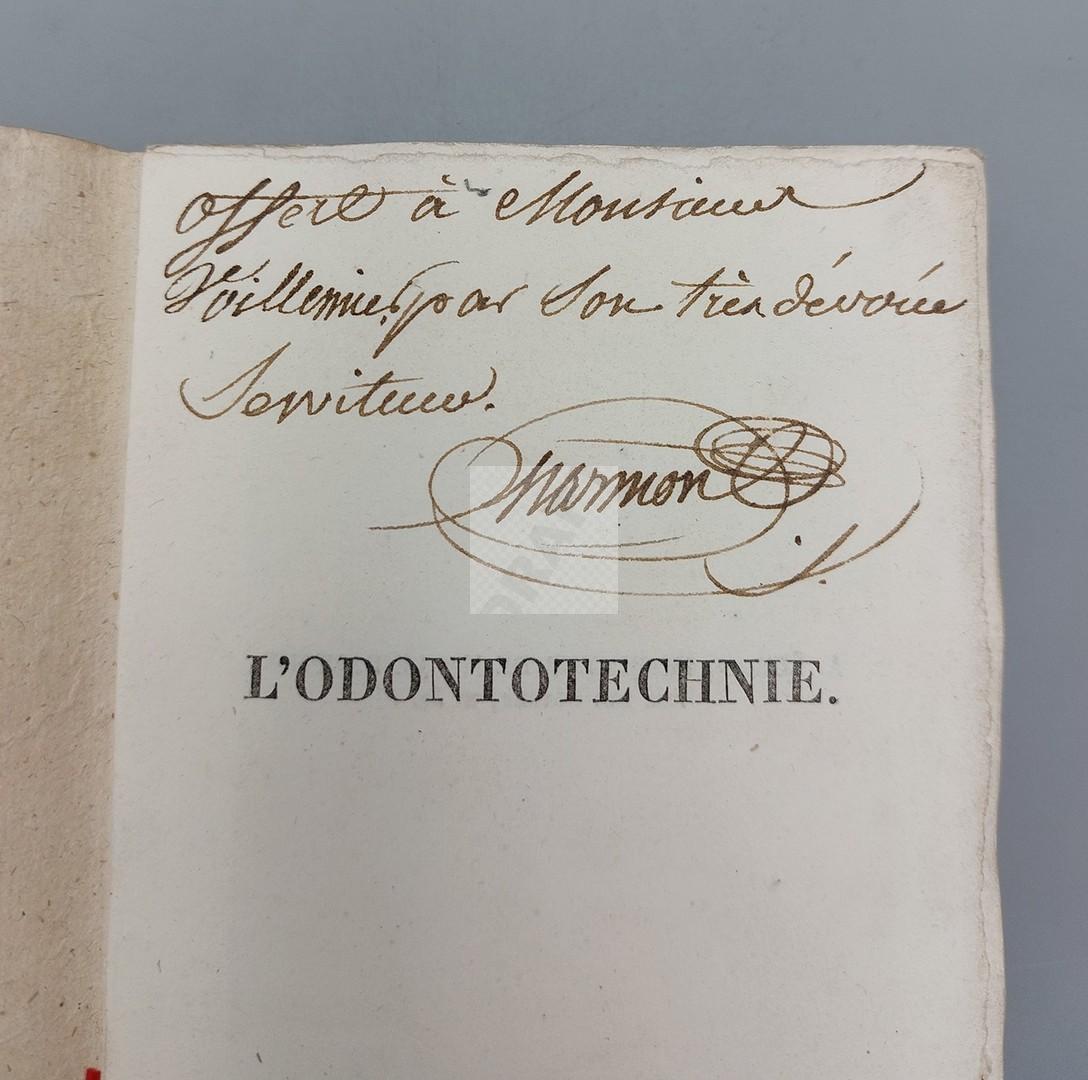 offert à Monsieur
Voillemier, par son très dévoué
Serviteur.
Marmon
L'ODONTOTECHNIE.